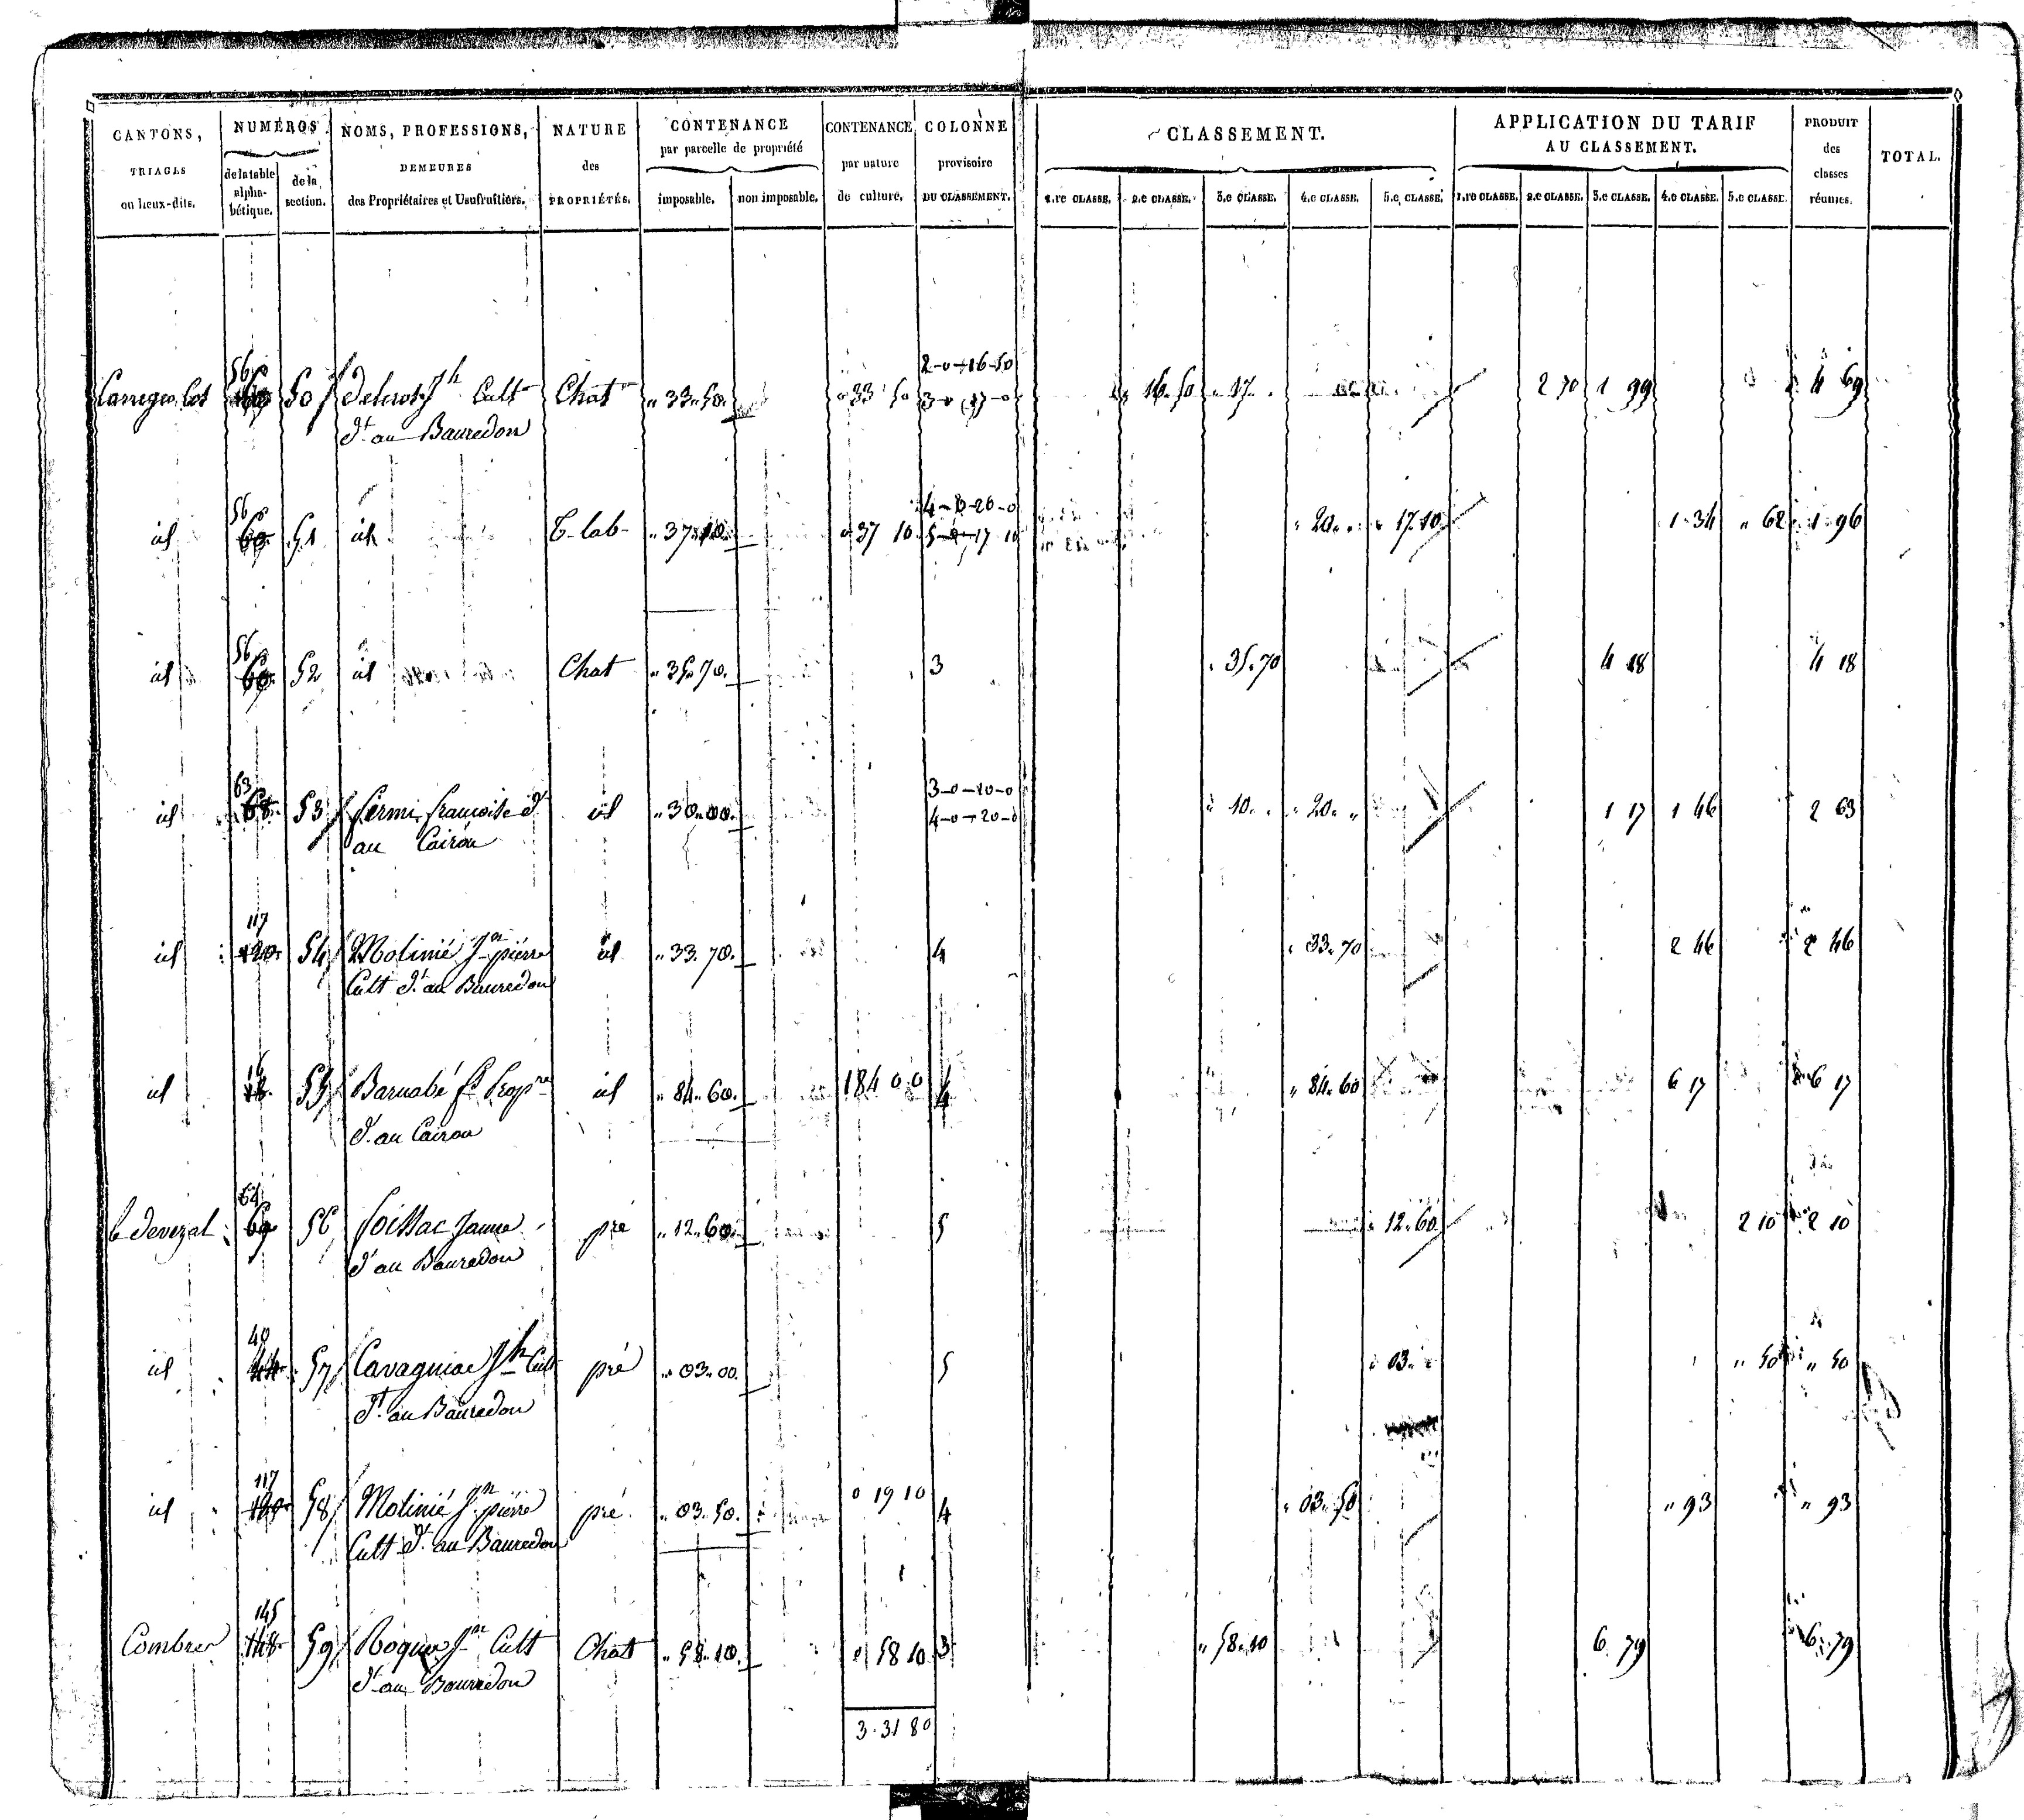 CANTONS, TRIAGES ou lieux-dits. NUMÉROS de la table alphabétique. de la section. NOMS, PROFESSIONS, DEMEURES des Propriétaires et Usufruitiers. NATURE des PROPRIÉTÉS. CONTENANCE par parcelle de propriété imposable. non imposable. CONTENANCE par nature de culture. COLONNE provisoire DU CLASSEMENT. CLASSEMENT. 1.re CLASSE. 2.e CLASSE. 3.e CLASSE. 4.e CLASSE. 5.e CLASSE. APPLICATION DU TARIF AU CLASSEMENT. 1.re CLASSE. 2.e CLASSE. 3.e CLASSE. 4.e CLASSE. 5.e CLASSE. PRODUIT des classes réunies. TOTAL.
56 2-0-16-50
60 50 Jh Cult Chat " 33-50. 0 33 50 3-0-17-0 16.50 " 17. 2 70 1 99 4 69
dt au Bauredon
56 4-0-20-0
id 60 51 id T. lab- " 37-10. 0 37 10 5-0-17 10 " 20. " " 17.10 1.34 " 62 1.96
56
id 60 52 id Chat " 35.70. 3 " 35.70 4 18 4 18
63 3-0-10-0
id 68 53 fermi francoise dt id " 30.00. 4-0-20-0 " 10. " " 20. " 1 17 1 46 2 63
au Cairou
117
id 120 54 Molinié Jn pierre id " 33.70. 4 " 33.70 2 46 2 46
Cult dt au Bauredon
16
id 18 55 Barnabé Propre id " 84.60. 1 84 00 4 " 84.60 6 17 6 17
dt au Cairou
64
le devezal 69 56 foissac Jeanne pré " 12.60. 5 " 12.60 2 10 2 10
dt au Bauredon
40
id 44 57 Cavagniac Jh Cult pré " 03.00. 5 " 03. " " 50 " 50
dt au Bauredon
117
id 120 58 Molinié Jn pierre pré " 03.50. 0 19 10 4 " 03.50 " 93 " 93
Cult dt au Bauredon
145
Combres 148 59 Roques Jn Cult Chat " 58.10. 0 58 10 3 " 58.10 6 79 6.79
dt au Bauredon
3.31 80